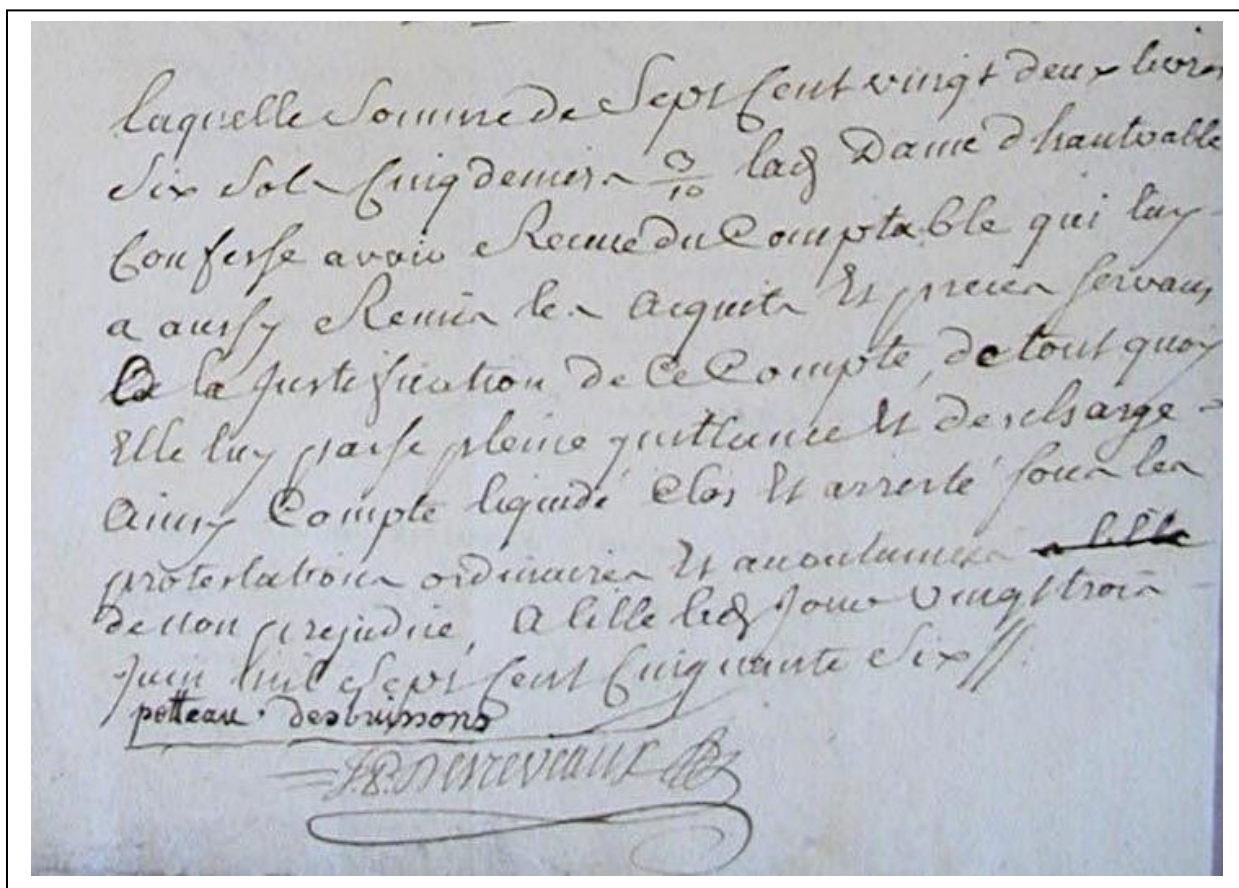 laquelle Somme de Sept Cent vingt deux livres
Six Sols Cinq deniers 3/10 lad Dame d hautvable
Confesse avoir Receue du Comptable qui luy
a aussy Remis les acquits Et pieces servans
a la Justification de Ce Compte, de tout quoy
Elle luy passe pleine quittance Et descharge -
Ainsy Compte liquidé Clos Et arresté sous les
protestations ordinaires Et accoutumees a lille
de non prejudice, A lille led Jour vingt trois -
Juin mil Sept Cent Cinquante Six //.
potteau . desbuissons